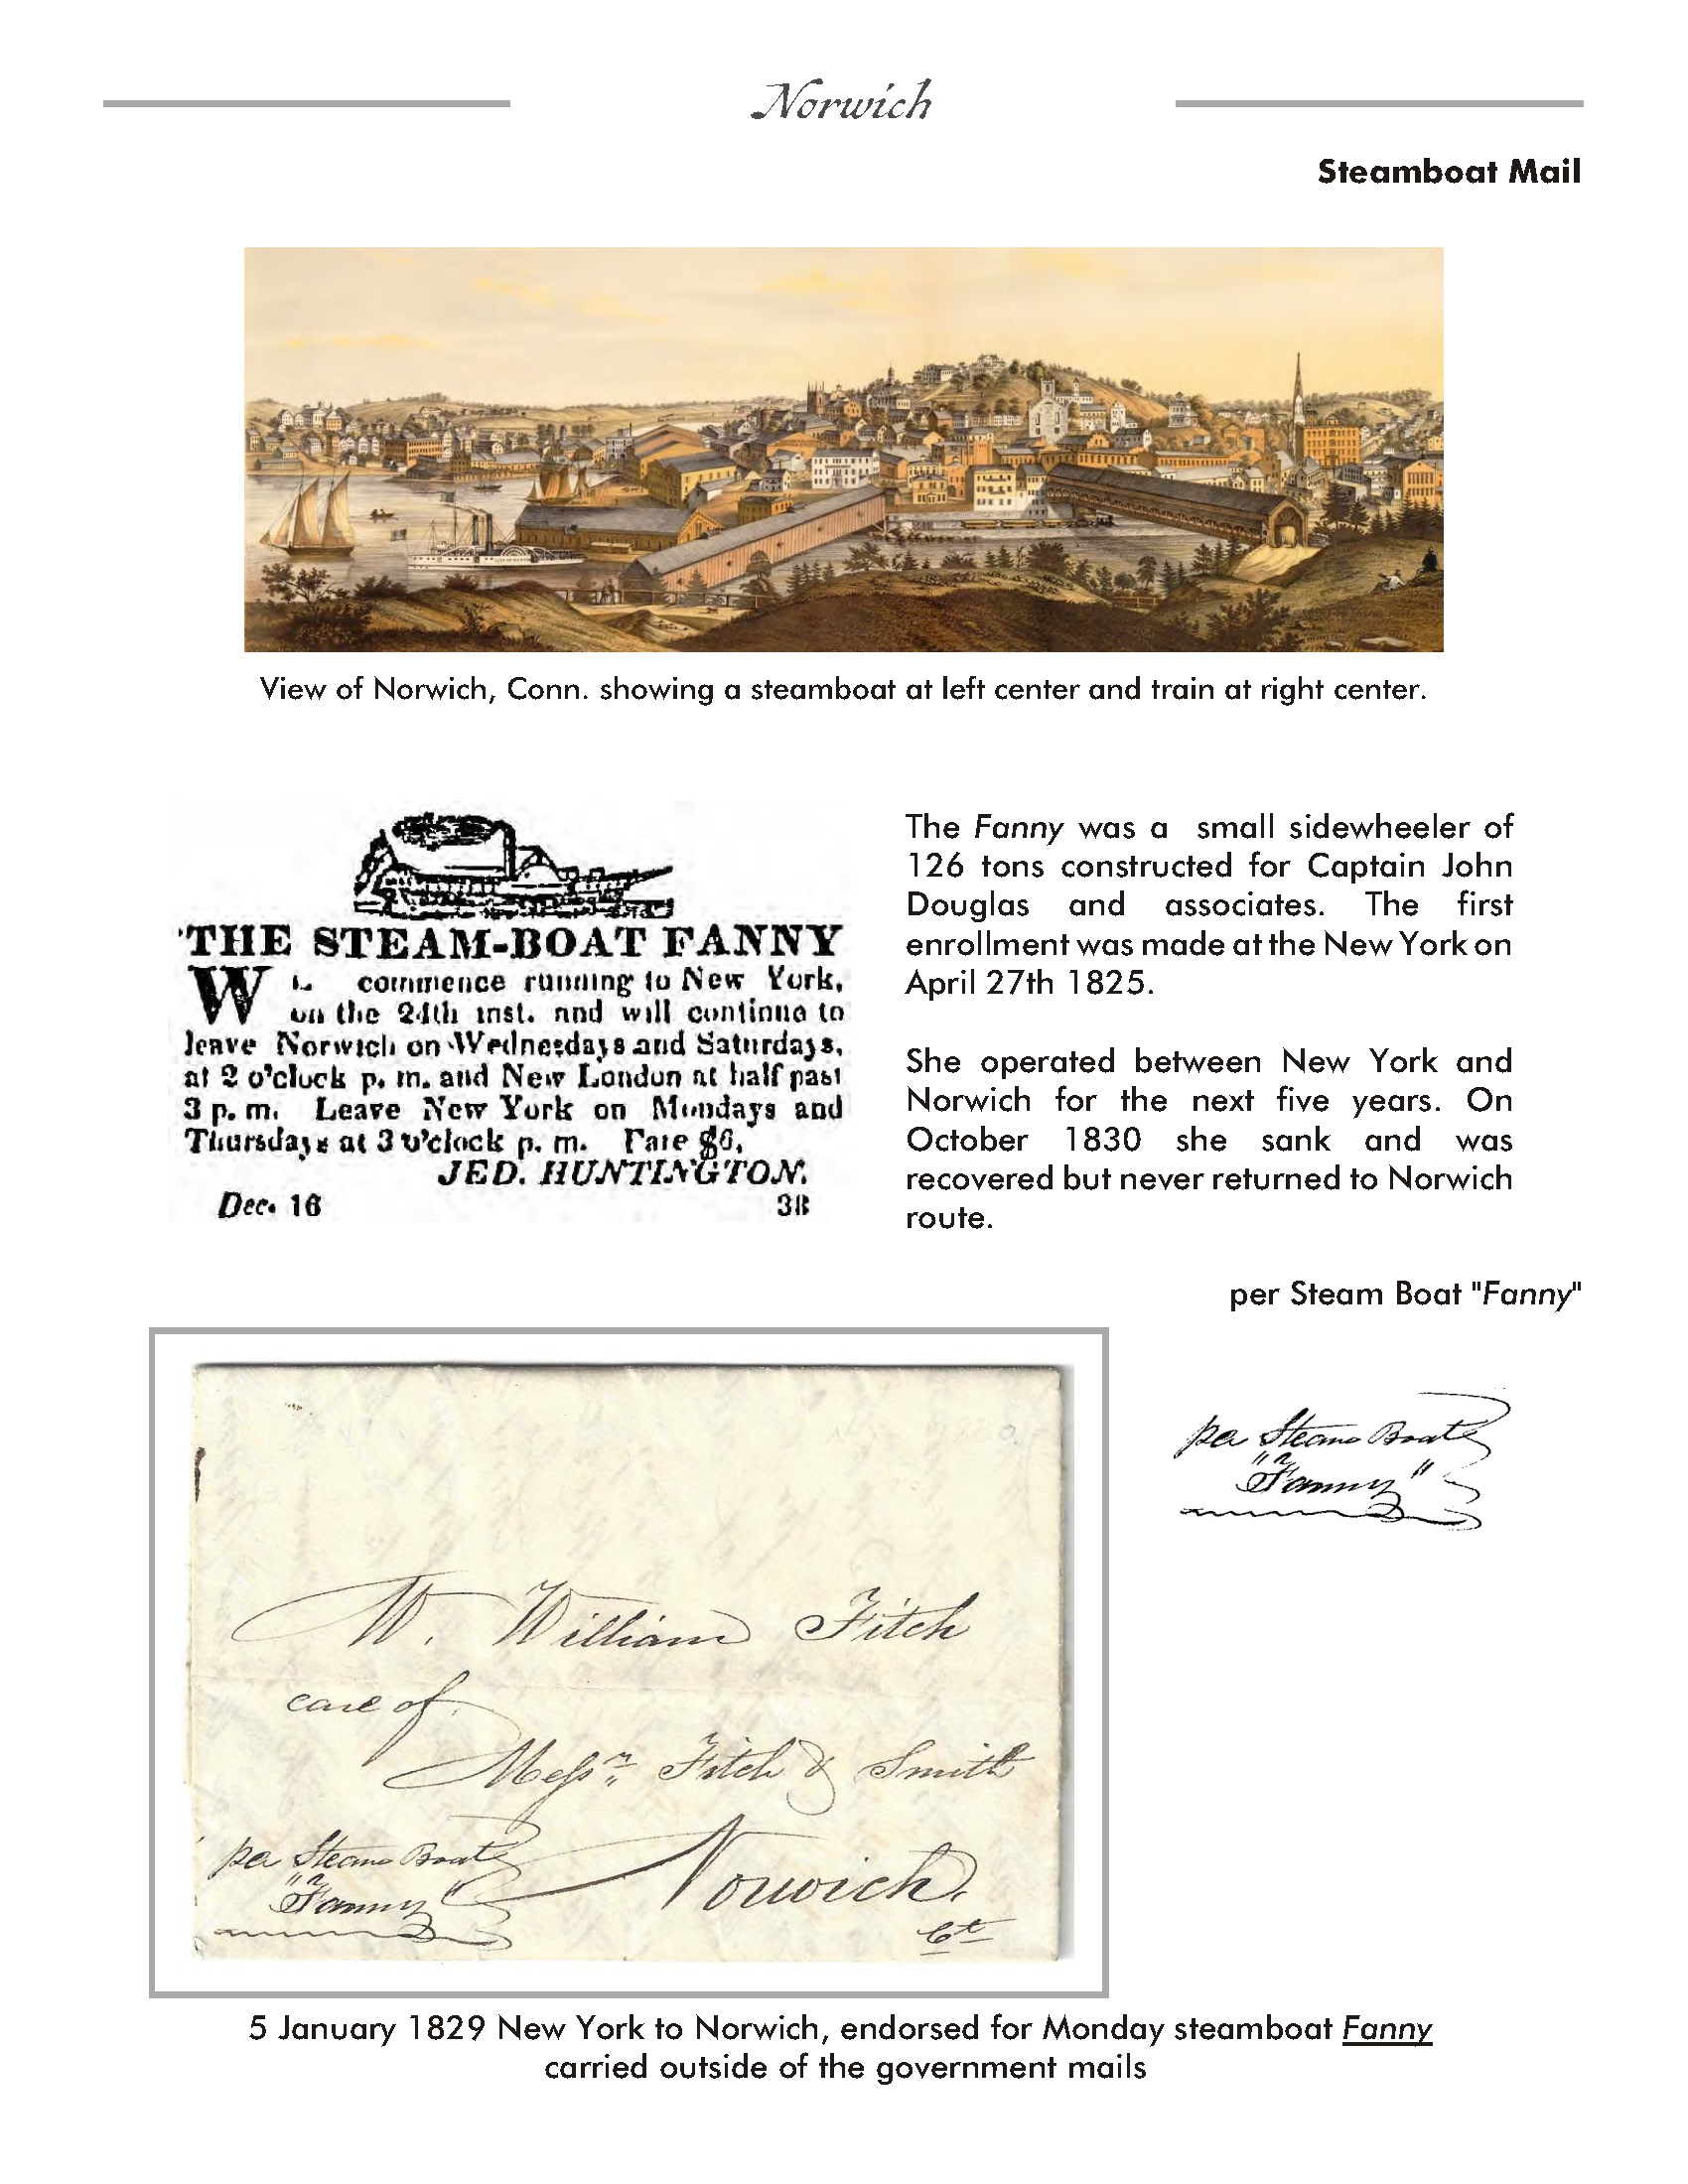 Norwich
Steamboat Mail
View of Norwich, Conn. showing a steamboat at left center and train at right center.
THE STEAM-BOAT FANNY
W commence running to New York,
on the 24th inst. and will continue to
leave Norwich on Wednesdays and Saturdays,
at 2 o'clock p. m. and New London at half past
3 p. m. Leave New York on Mondays and
Thursdays at 3 o'clock p. m. Fare $6,
JED. HUNTINGTON.
Dec. 16 38
The Fanny was a small sidewheeler of
126 tons constructed for Captain John
Douglas and associates. The first
enrollment was made at the New York on
April 27th 1825.
She operated between New York and
Norwich for the next five years. On
October 1830 she sank and was
recovered but never returned to Norwich
route.
per Steam Boat "Fanny"
per Steam Boat
"Fanny"
William Fitch
care of
Messrs Fitch & Smith
per Steam Boat
"Fanny"
Norwich
Ct
5 January 1829 New York to Norwich, endorsed for Monday steamboat Fanny
carried outside of the government mails